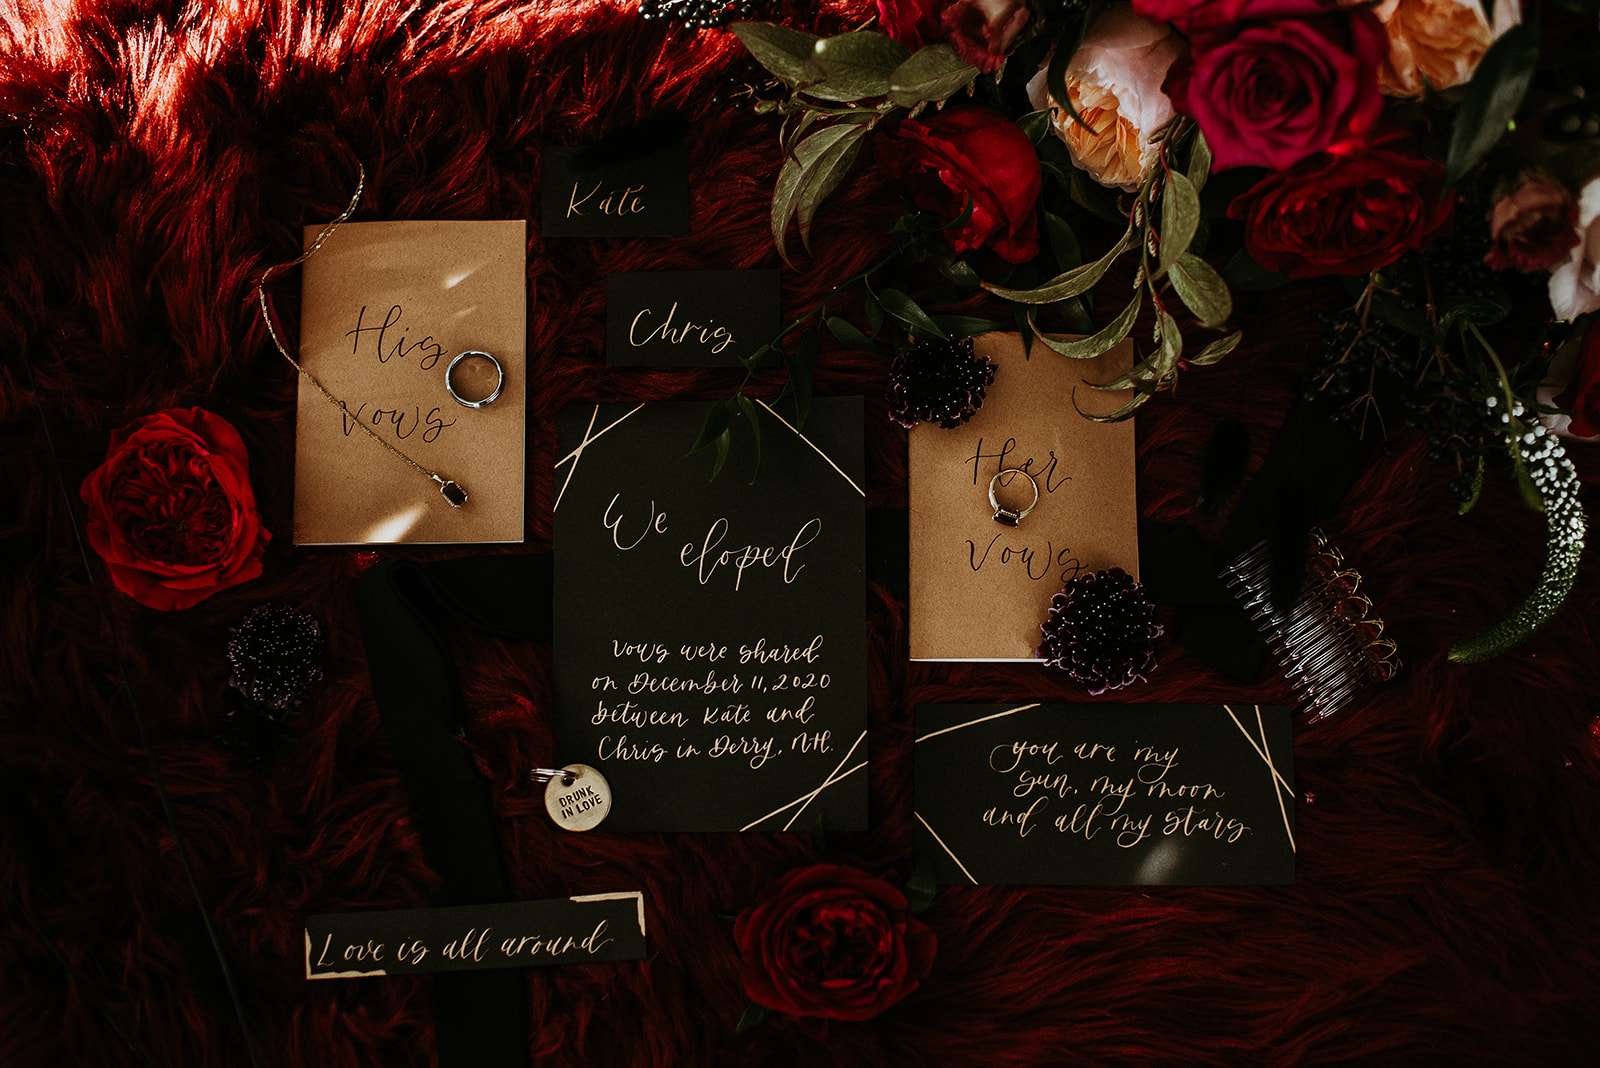 Kate
Chris
His
Vows
We
eloped
Vows were shared
on December 11, 2020
between Kate and
Chris in Derry, NH.
Her
Vows
you are my
sun, my moon
and all my stars.
DRUNK
IN LOVE
Love is all around